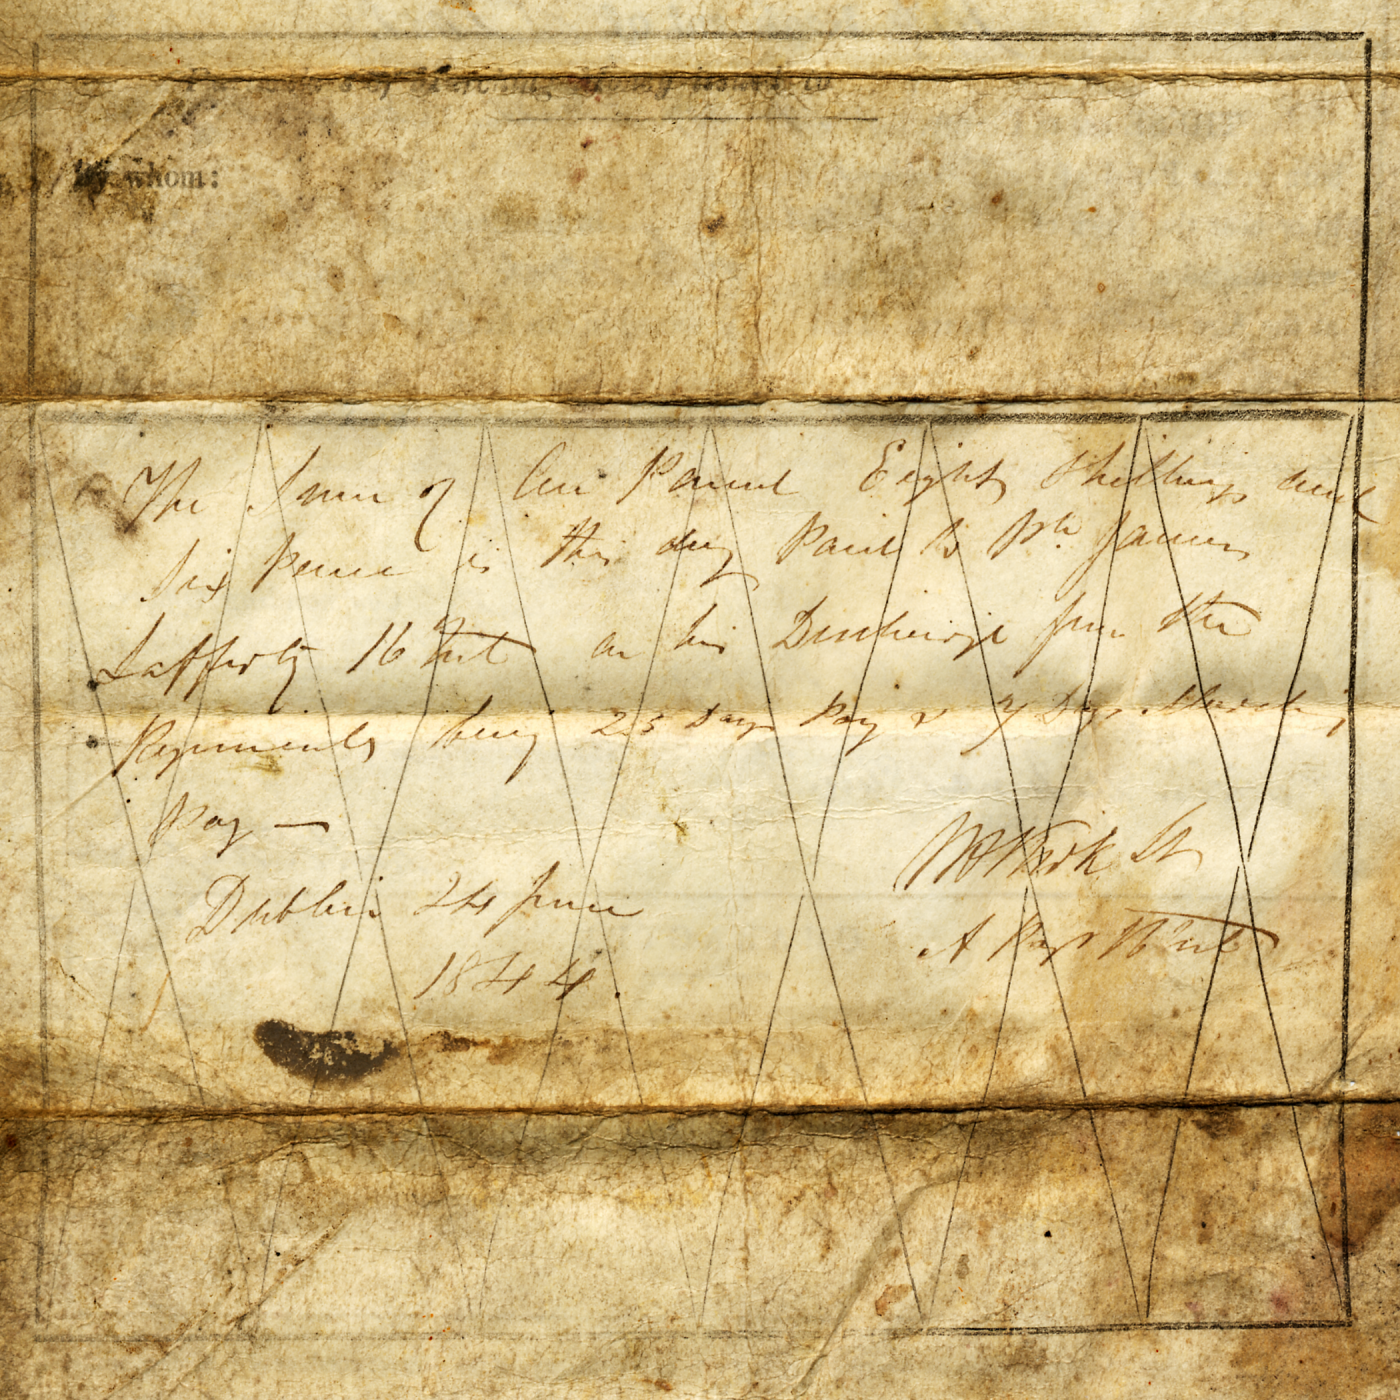 By whom:
The Sum of One Pound Eight Shillings and
Six Pence is this day Paid to Pte James
Lafferty 16 Fut on his Discharge from the
Regiment being 23 Days Pay & 7 Days Marching
Pay —
Dublin 24 June
1844.
A Pay 16 Fut